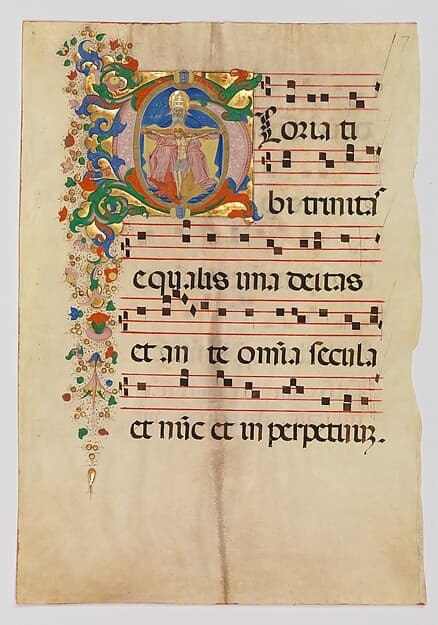 GLoria ti
bi trinitas
equalis una deitas
et an te om̄ia secula
et nūc et in perpetuuꝫ.